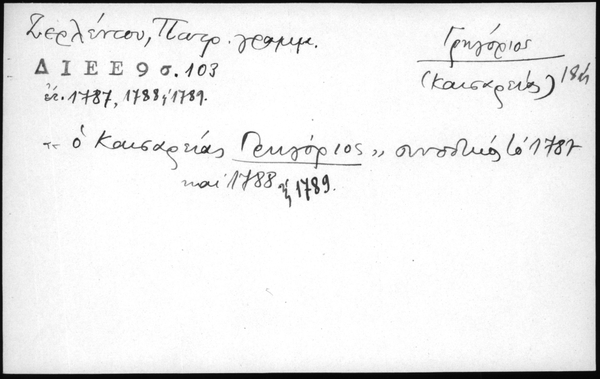 Ζερλέντου, Πατρ. γραμμ.
Γρηγόριος
(Καισαρείας) 18ος
ΔΙΕΕ 9 σ. 103
ἔτ. 1787, 1788 ἢ 1789.
"ὁ Καισαρείας Γρηγόριος" συνοδικός τὸ 1787
καὶ 1788 ἢ 1789.